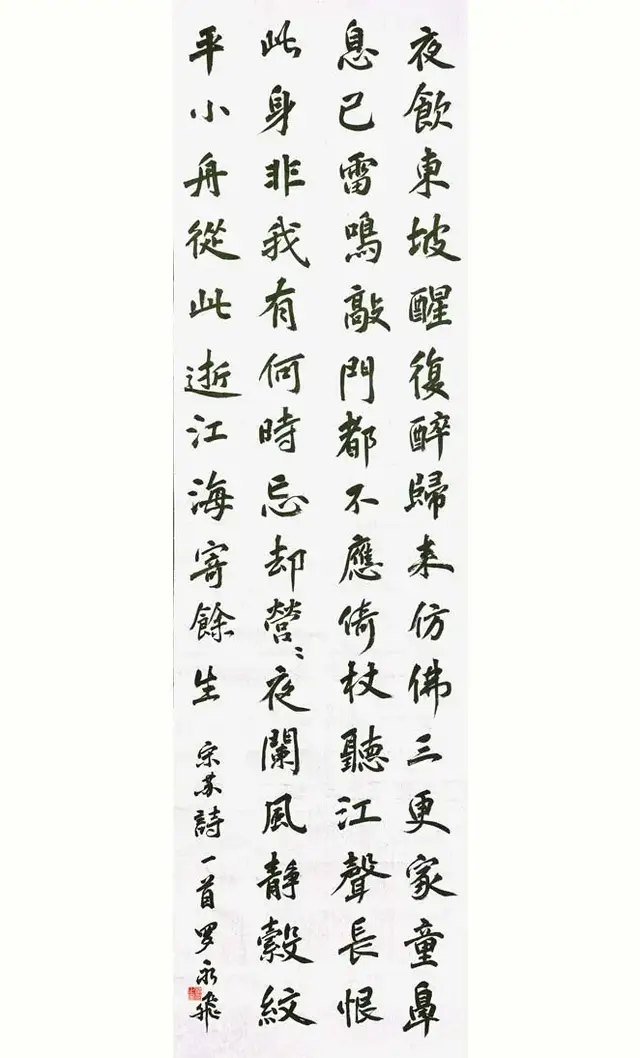 夜飲東坡醒復醉歸来仿佛三更家童鼻
息已雷鳴敲門都不應倚杖聽江聲長恨
此身非我有何時忘却營〻夜闌風静縠紋
平小舟從此逝江海寄餘生
宋苏詩一首罗永飛